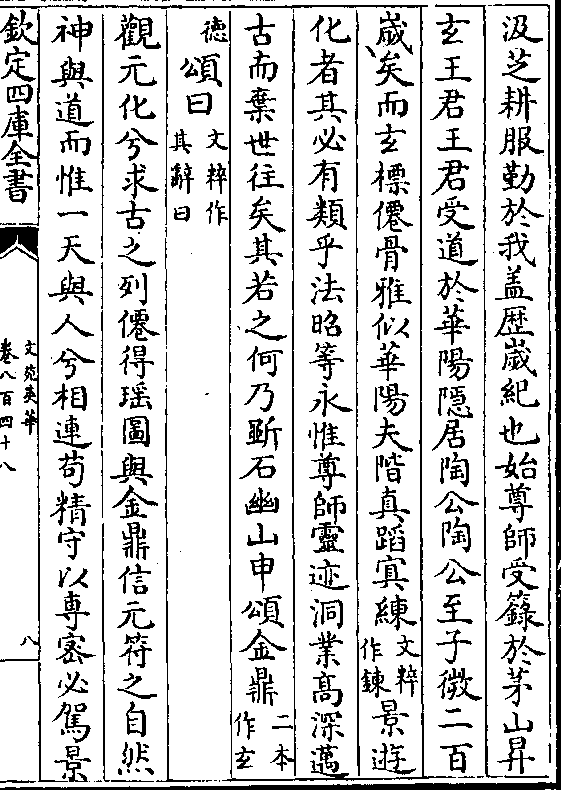 汲芝耕服勤於我盖歴嵗紀也始尊師受籙於茅山昇
玄王君王君受道於華陽隠居陶公陶公至子微二百
嵗矣而玄標僊骨雅似華陽夫階真蹈冥練文粹作鍊景遊
化者其必有類乎法昭等永惟尊師靈迹洞業髙深邁
古而棄世往矣其若之何乃斲石幽山申頌金鼎二本作玄
徳頌曰文粹作其辭曰
觀元化兮求古之列僊得瑶圖與金鼎信元符之自然
神與道而惟一天與人兮相連苟精守以専宻必駕景
欽定四庫全書
文苑英華
卷八百四十八
八